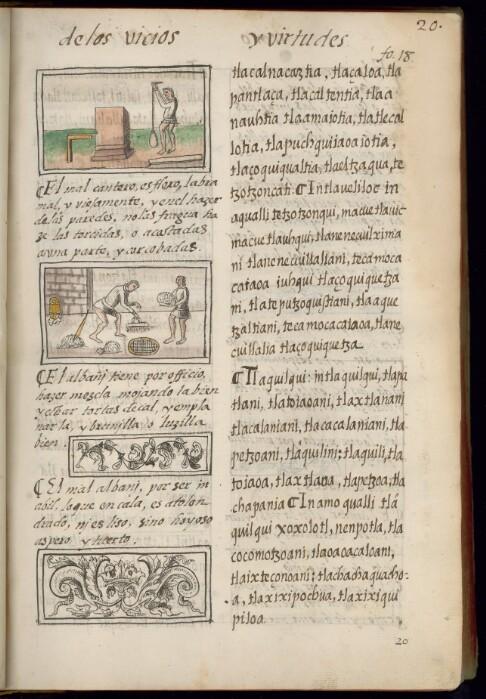 20.
de los vicios y virtudes
fo. 18
¶ El mal cantero, es flexo, labra
mal, y viejamente, y en el hazer
de las paredes, no las fragua ha
ze las torcidas, o acostadas
a una parte, y corcobadas.
¶ El albanj tiene por officio,
hazer mezcla mojando la bien
y echar tortas de cal, y empla
nar la, y bruñilla o luzilla
bien.
¶ El mal albanj, por ser in
abil, lo que encala, es atolon
drado, nj es liso, sino hoyoso
aspero y tuerto.
tlacalnacaztia, tlaçaloa, tla
pantlaça, tlacaltentia, tlaa
nauhtia tlaamaiotia, tlatlecal
lotia, tlapuchquiiaoaiotia,
tlaçoquiqualtia, tlaeltzaqua, te
tzotzoncati. ¶ In tlaveliloc in
aqualli tetzotzonqui,
macuetlauhqui, tlanenecuilxima
ni tlanenecuillaliani, tecamoca
caiaoa iuhqui tlaçoquiquetza
ni, tlateputzoquistiani, tlaaque
tzaltiani, teca mocacaiaoa, tlane
cuillalia tlaçoquiquetza.
¶ Tlaquilqui: in tlaquilqui, tlapa
tlani, tlatoiaoani, tlaxtlanani
tlacalaniani, tlacacalaniani, tla
petzoani, tlaquilini: tlaquili, tla
toiaoa, tlaxtlaoa, tlapetzoa, tla
chapania ¶ In amo qualli tla
quilqui xoxolotl, nenpotla, tla
cocomotzoani, tlaoacacalcani,
tlaixteçonoani; tlachachaquacho
a, tlaxixipochua, tlaxixiqui
piloa.
20